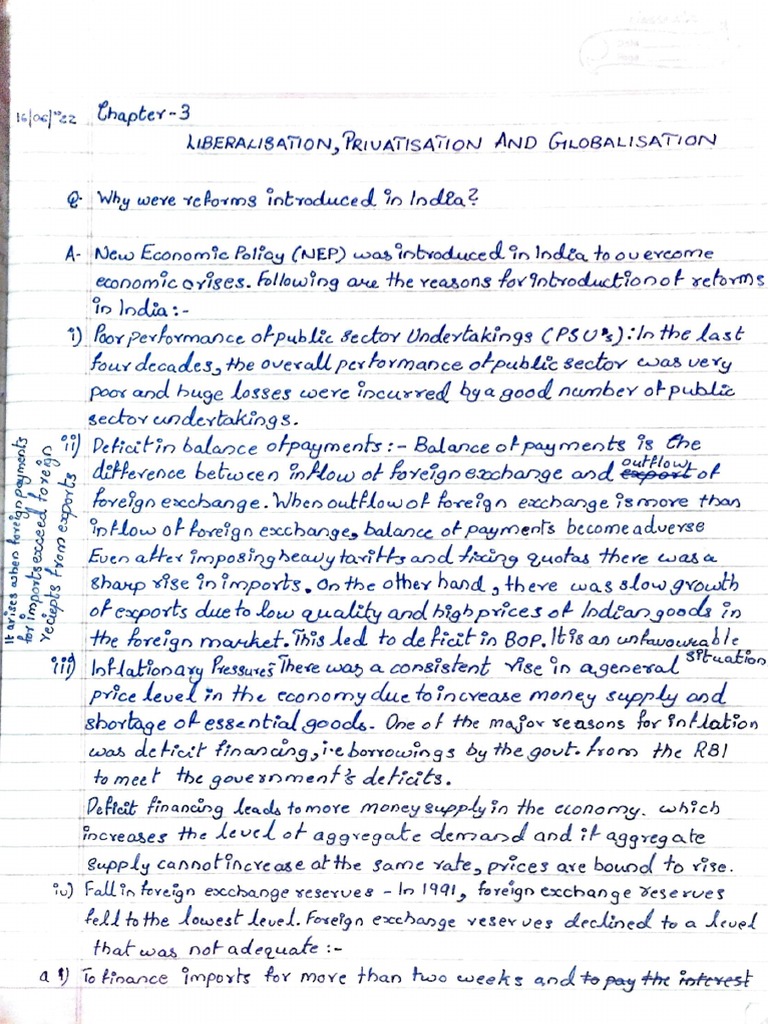 16/06/'22
Chapter-3
LIBERALISATION, PRIVATISATION AND GLOBALISATION
Q- Why were reforms introduced in India?
A- New Economic Policy (NEP) was introduced in India to overcome
economic crises. Following are the reasons for introduction of reforms
in India:-
i) Poor performance of public sector Undertakings (PSU's): In the last
four decades, the overall performance of public sector was very
poor and huge losses were incurred by a good number of public
sector undertakings.
It arises when foreign payments
for imports exceed foreign
reciepts from exports
ii) Deficit in balance of payments:- Balance of payments is the
difference between inflow of foreign exchange and ~~export~~ outflow of
foreign excchange. When outflow of foreign exchange is more than
inflow of foreign exchange, balance of payments become adverse
Even after imposing heavy tariffs and fixing quotas there was a
sharp rise in imports. On the other hand, there was slow growth
of exports due to low quality and high prices of Indian goods in
the foreign market. This led to deficit in BOP. It is an unfavourable situation
iii) Inflationary Pressures- There was a consistent rise in a general
price level in the economy due to increase money supply and
shortage of essential goods. One of the major reasons for inflation
was deficit financing, i.e borrowings by the govt. from the RBI
to meet the government's deficits.
Deficit financing leads to more money supply in the economy. which
increases the level of aggregate demand and if aggregate
supply cannot increase at the same rate, prices are bound to rise.
iv) Fall in foreign exchange reserves - In 1991, foreign exchange reserves
fell to the lowest level. Foreign exchange reserves declined to a level
that was not adequate:-
a) To finance imports for more than two weeks and ~~to pay the interest~~